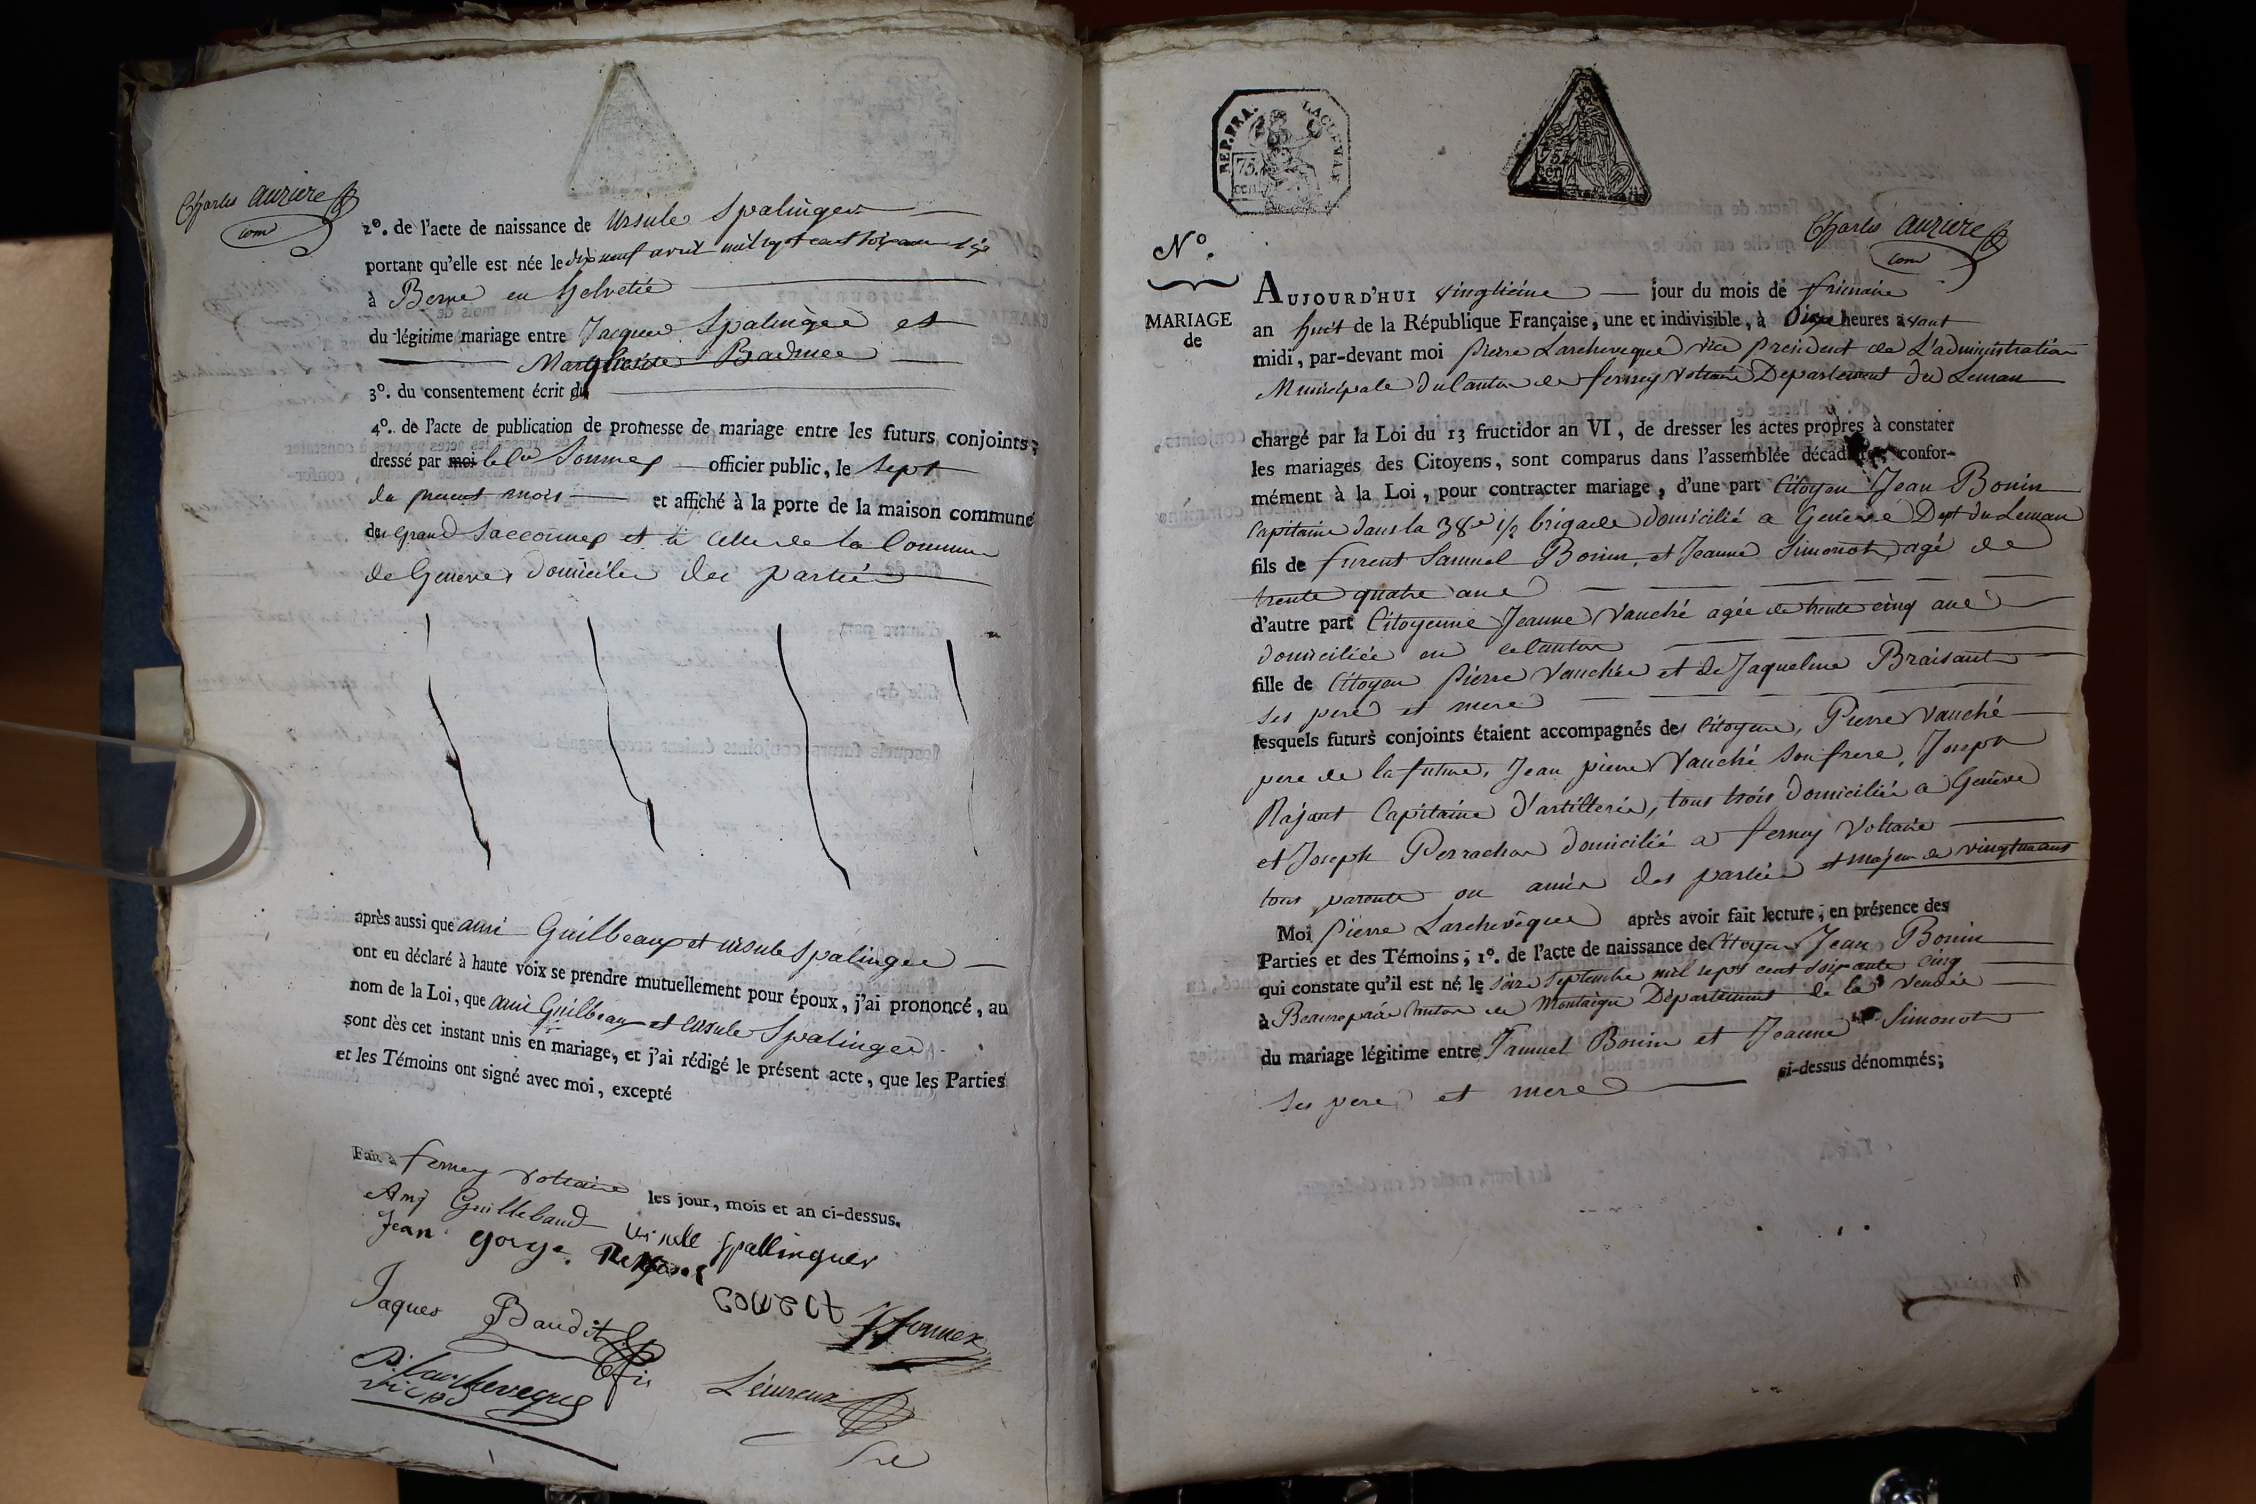 Charles auziere
com
2º. de l'acte de naissance de Ursule Spalinger
portant qu'elle est née le dix neuf avril mil sept cent soixante
à Berne en helvetie
du légitime mariage entre Jacques Spalinger et
3º. du consentement écrit du
4º. de l'acte de publication de promesse de mariage entre les futurs conjoints;
dressé par moi le Cn Sonnex officier public, le Sept
du present mois et affiché à la porte de la maison commune
du Grand Sacconnex et à Celle de la Commune
de Geneve, domicile des parties
après aussi que ami Guilbeaux et ursule Spalinger
ont eu déclaré à haute voix se prendre mutuellement pour époux, j'ai prononcé, au
nom de la Loi, que ami Guilbeaux et Ursule Spalinger
sont dès cet instant unis en mariage, et j'ai rédigé le présent acte, que les Parties
et les Témoins ont signé avec moi, excepté
Fait à ferney voltaire les jour, mois et an ci-dessus.
Amj Guillebaud Ursule Spallinguer
Jean gorge
Jaques Baudit
JJ Sonnex
P. Larcheveque
L'eureux
REP. FRA.
75.
cent
75
cen
Charles auziere
com
Nº.
MARIAGE
de
AUJOURD'HUI vingtieme jour du mois de frimaire
an huit de la République Française, une et indivisible, à Dix heures avant
midi, par-devant moi pierre Larcheveque vice president de L'administration
Municipale du Canton de ferney voltaire Departement du Leman
chargé par la Loi du 13 fructidor an VI, de dresser les actes propres à constater
les mariages des Citoyens, sont comparus dans l'assemblée décadaire, confor-
mément à la Loi, pour contracter mariage, d'une part Citoyen Jean Bonin
Capitaine dans la 38e 1/2 brigade domicilié a Genève Dept du Leman
fils de furent Samuel Bonin, et Jeanne Simonot, agé de
trente quatre ans
d'autre part Citoyenne Jeanne Vauché agée de trente cinq ans
domiciliée en ce Canton
fille de Citoyen pierre Vauchée et de Jaqueline Braisant
ses pere et mere
lesquels futurs conjoints étaient accompagnés des Citoyens, Pierre Vauché
pere de la future, Jean pierre Vauché son frere, Joseph
Rajant Capitaine d'artillerie, tous trois domiciliés a Genève
et Joseph Perrachon domicilié a ferney Voltaire
tous parents ou amis des parties et majeurs de vingt un ans
Moi pierre Larchevêque après avoir fait lecture, en présence des
Parties et des Témoins; 1º. de l'acte de naissance de Citoyen Jean Bonin
qui constate qu'il est né le seize septembre mil sept cent soixante cinq
à Beaurepaire Canton de Montaigu Département de la Vendée
du mariage légitime entre Samuel Bonin et Jeanne Simonot
ses pere et mere ci-dessus dénommés;